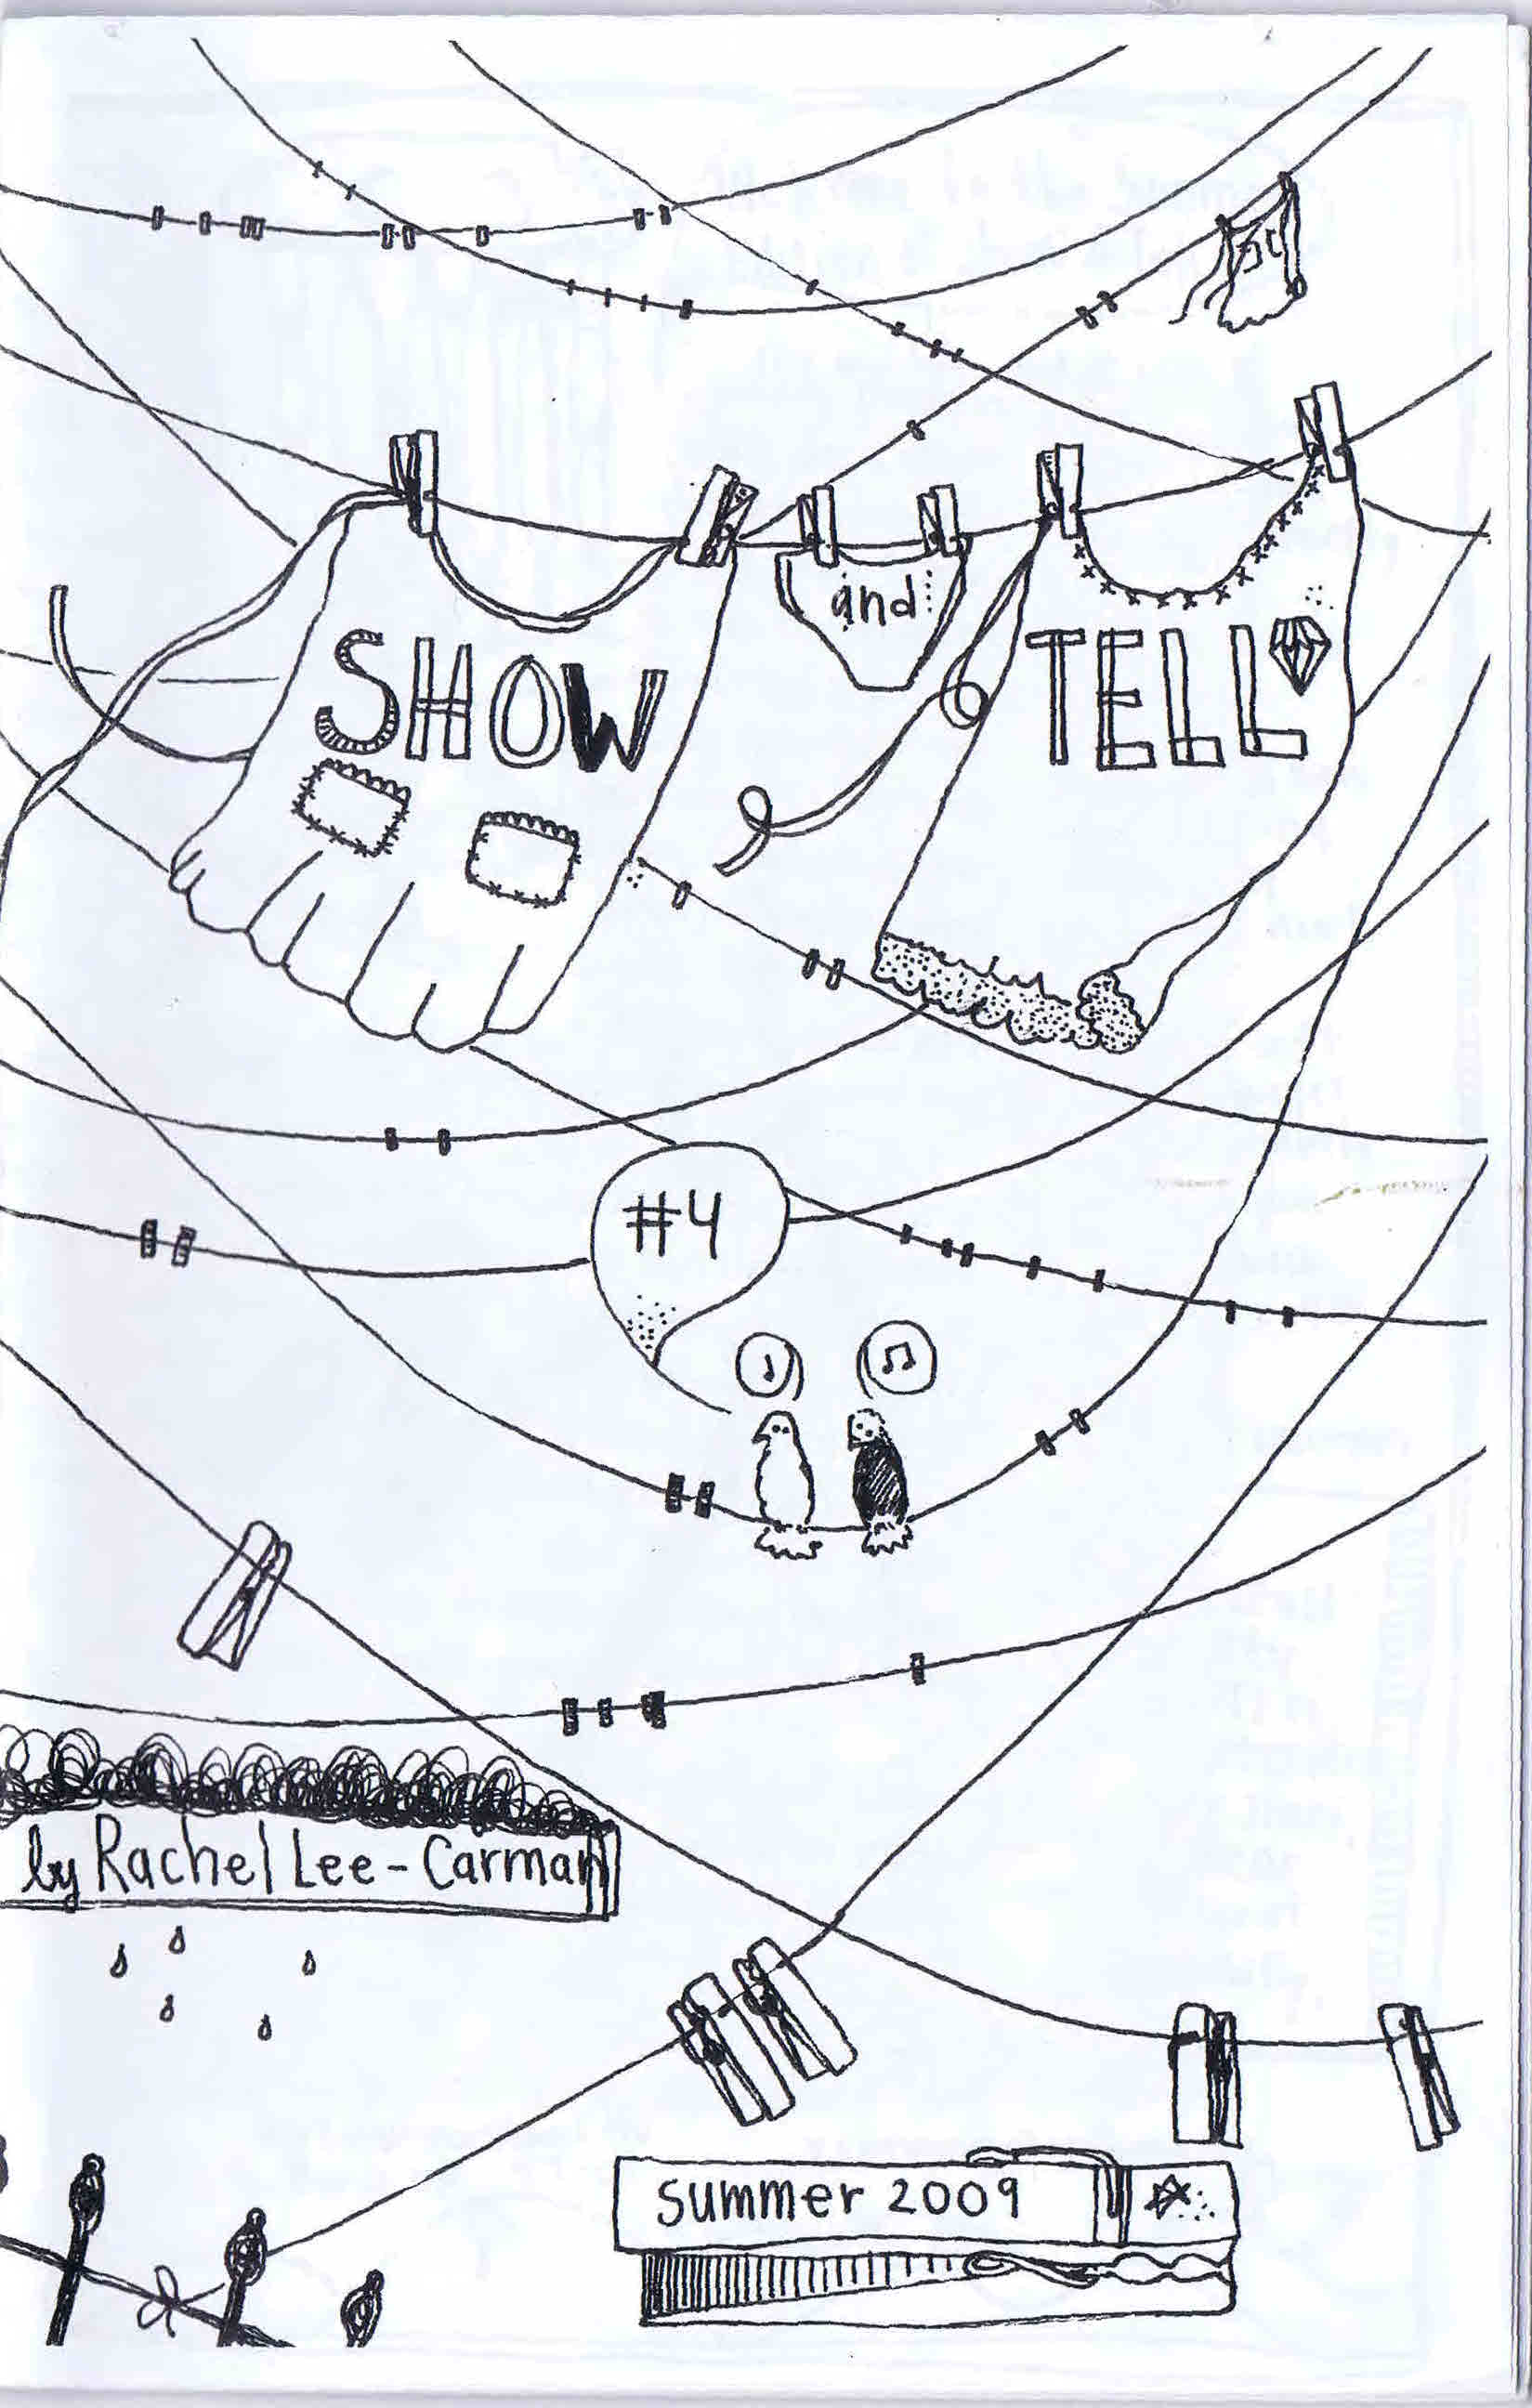 SHOW
and
TELL
#4
by Rachel Lee-Carman
summer 2009